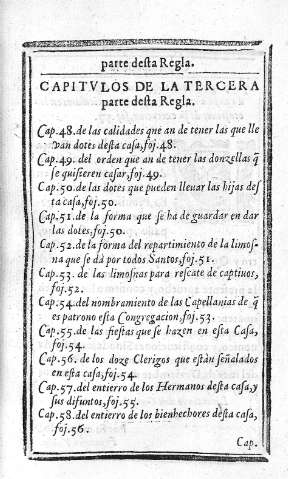 parte desta Regla.
CAPITVLOS DE LA TERCERA
parte desta Regla.
Cap.48. de las calidades que an de tener las que lle
van dotes desta casa, foj.48.
Cap.49. del orden que an de tener las donzellas q̃
se quisieren casar, foj.49.
Cap.50. de las dotes que pueden lleuar las hijas des
ta casa, foj.50.
Cap.51. de la forma que se ha de guardar en dar
las dotes, foj.50.
Cap.52. de la forma del repartimiento de la limos-
na que se da por todos Santos, foj.51.
Cap.53. de las limosnas para rescate de captiuos,
foj.52.
Cap.54. del nombramiento de las Capellanias de q̃
es patrono esta Congregacion, foj.53.
Cap.55. de las fiestas que se hazen en esta Casa,
foj.54.
Cap.56. de los doze Clerigos que estàn señalados
en esta casa, foj.54.
Cap.57. del entierro de los Hermanos desta casa, y
sus difuntos, foj.55.
Cap.58. del entierro de los bienhechores desta casa,
foj.56.
Cap.